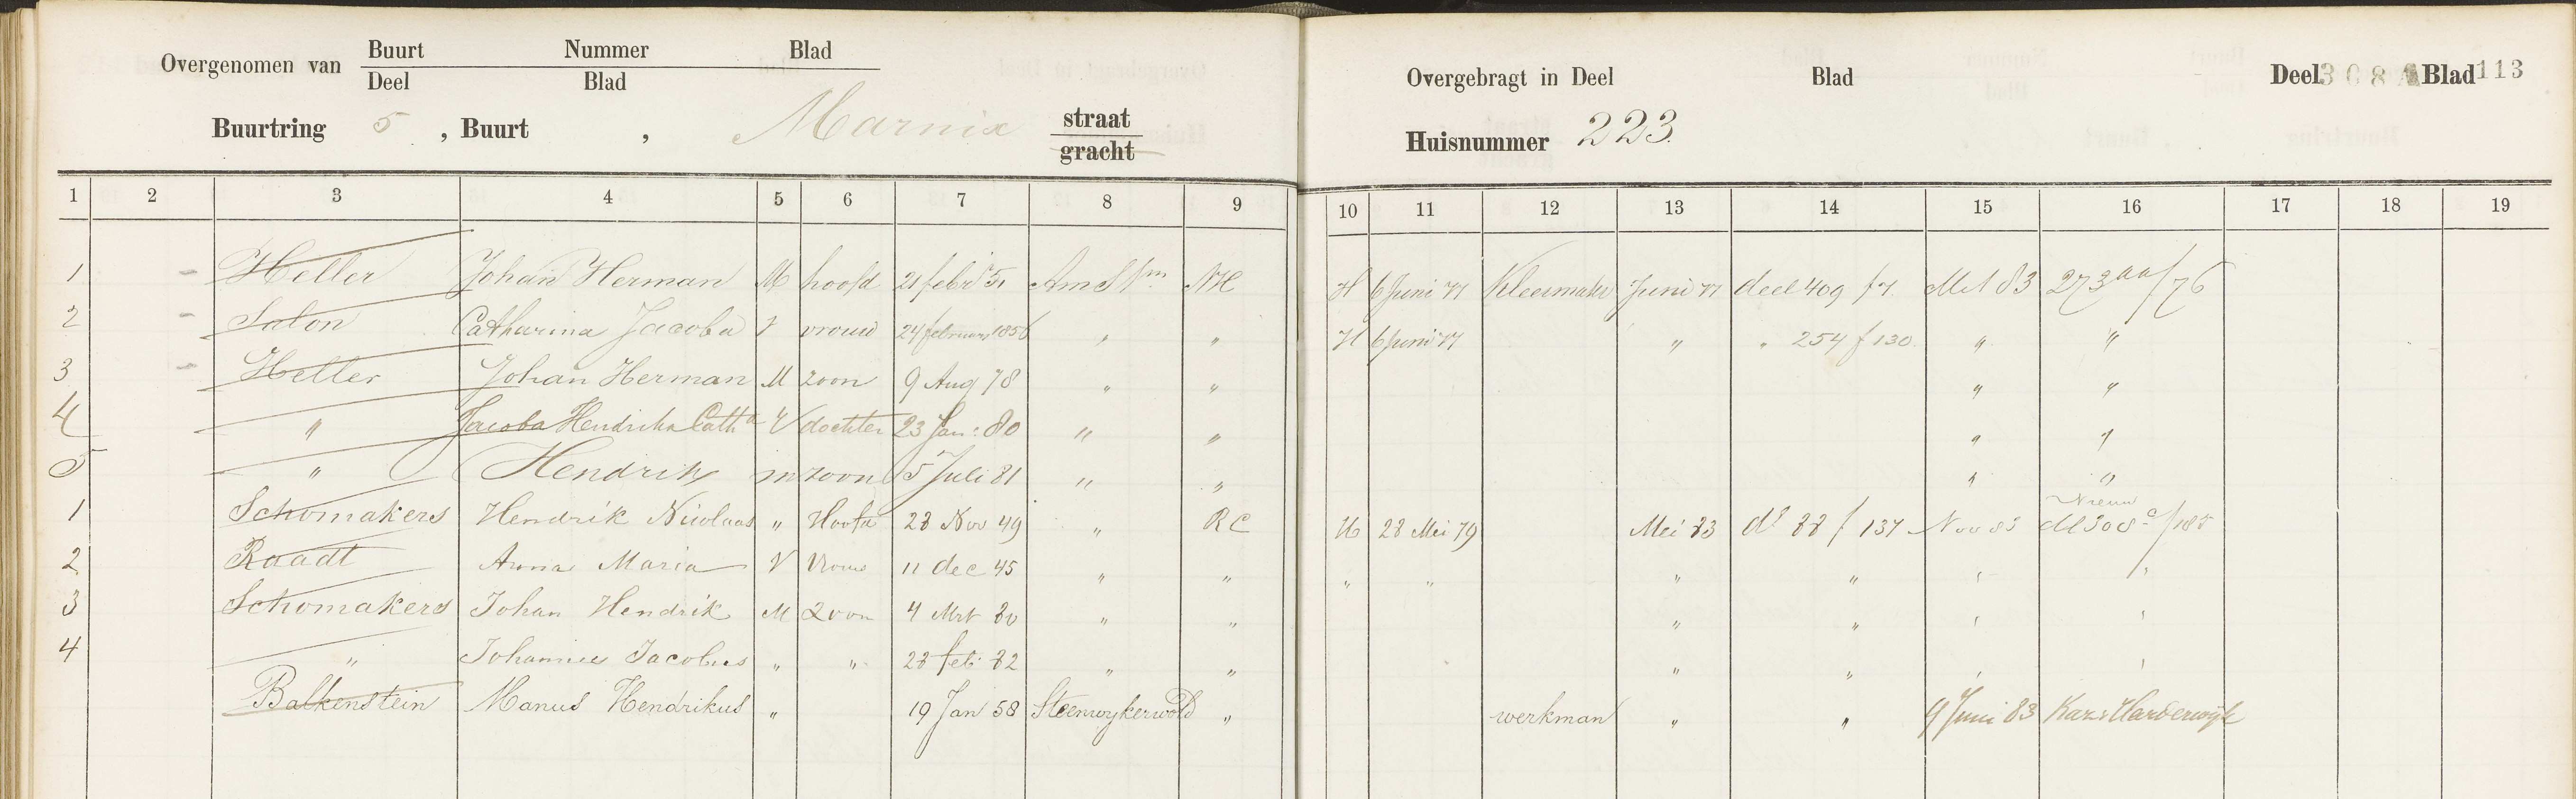 Overgenomen van Buurt Nummer Blad
Deel Blad
Buurtring 5 , Buurt , Marnix straat
gracht
Overgebragt in Deel Blad Deel 308 Blad 113
Huisnummer 223.
1 2 3 4 5 6 7 8 9 10 11 12 13 14 15 16 17 18 19
1 Heller Johan Herman M hoofd 21 febr 51 Amstm NH H 6 Juni 77 Kleermaker Juni 77 deel 409 f 7. Mrt 83 273aa/76
2 Salon Catharina Jacoba V vrouw 24 februari 1856 " " H 6 Juni 77 " " 254 f 130 " "
3 Heller Johan Herman M zoon 9 Aug 78 " " " "
4 " Jacoba Hendrika Catha V dochter 23 Jan: 80 " " " "
5 " Hendrik m zoon 5 Juli 81 " " " "
1 Schomakers Hendrik Nicolaas " Hoofd 28 Nov 49 " RC H 28 Mei 79 Mei 83 dl 88 f 137 Nov 83 Nieuw dl 308c/185
2 Raadt Anna Maria V Vrouw 11 dec 45 " " " " " " " "
3 Schomakers Johan Hendrik M zoon 4 Mrt 80 " " " " " "
4 " Johannes Jacobus " " 28 feb: 82 " " " " " "
Balkenstein Manus Hendrikus " 19 Jan 58 Steenwykerwold " werkman " " 9 Juni 83 Harderwijk